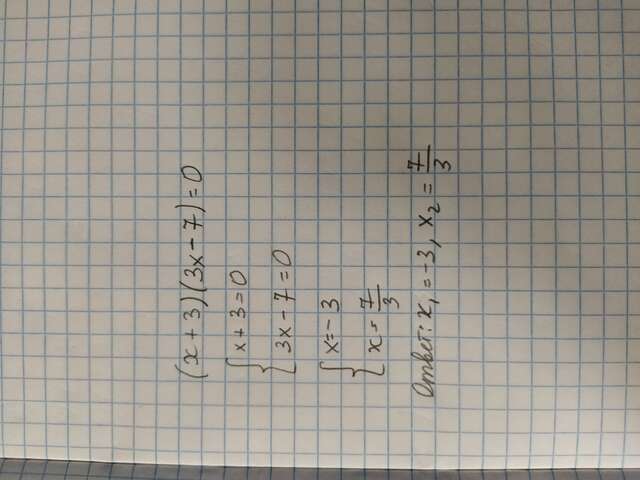 (x+3)(3x-7)=0
{x+3=0
{3x-7=0
{x=-3
{x=7/3
Ответ: x₁=-3, x₂=7/3